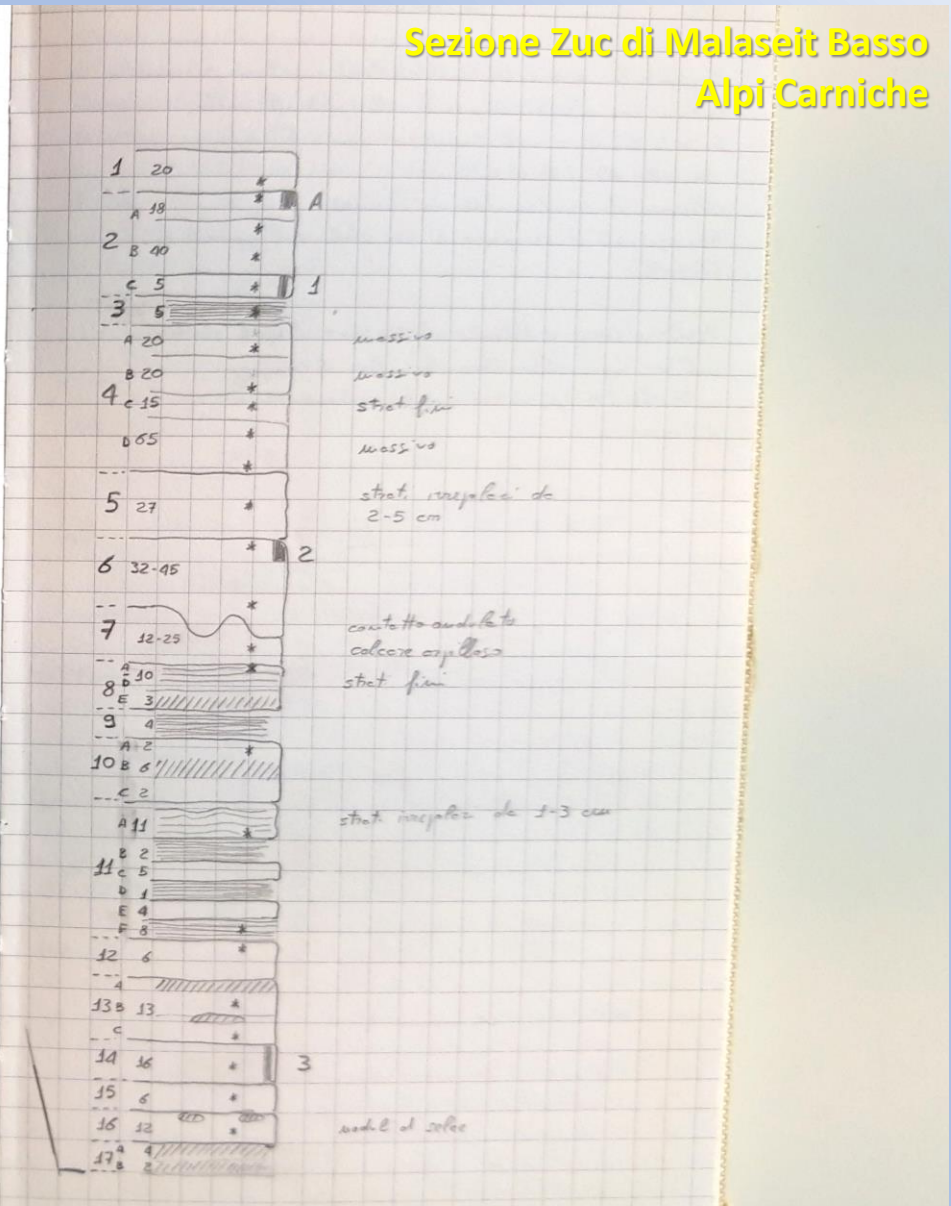 Sezione Zuc di Malaseit Basso
Alpi Carniche
1 20 *
* A
A 18
*
2 B 40 *
C 5 * 1
3 5 *
A 20 * massivo
B 20 massivo
*
4 C 15 * strat fini
D 65 * massivo
*
5 27 * strat. irregolari da
2-5 cm
* 2
6 32-45
*
7 12-25 contatto ondulato
* calcare argilloso
A *
8 D 10 strat fini
E 3
9 4
A 2 *
10 B 6
C 2
A 11 * strat. irregolari da 1-3 cm
B 2
11 C 5
D 1
E 4
F 8 *
12 6 *
A
13 B 13 *
C *
14 16 * 3
15 6 *
16 12 * noduli di selce
17 A 4
B 2